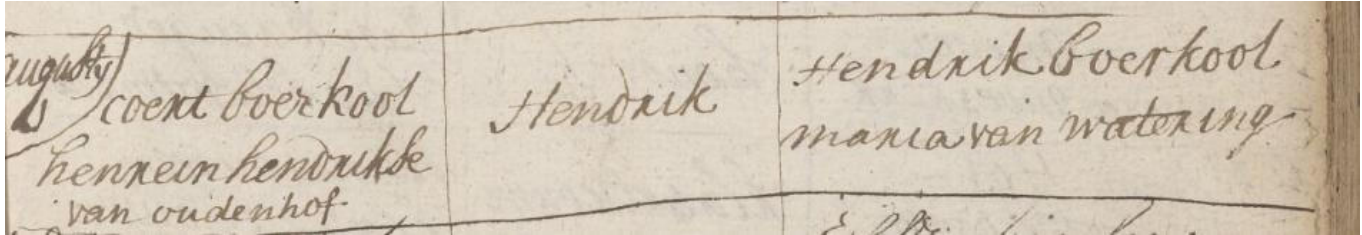 augusty
coert boerkool
henrein hendrikse
van oudenhof
Hendrik
Hendrik boerkool
maria van watering